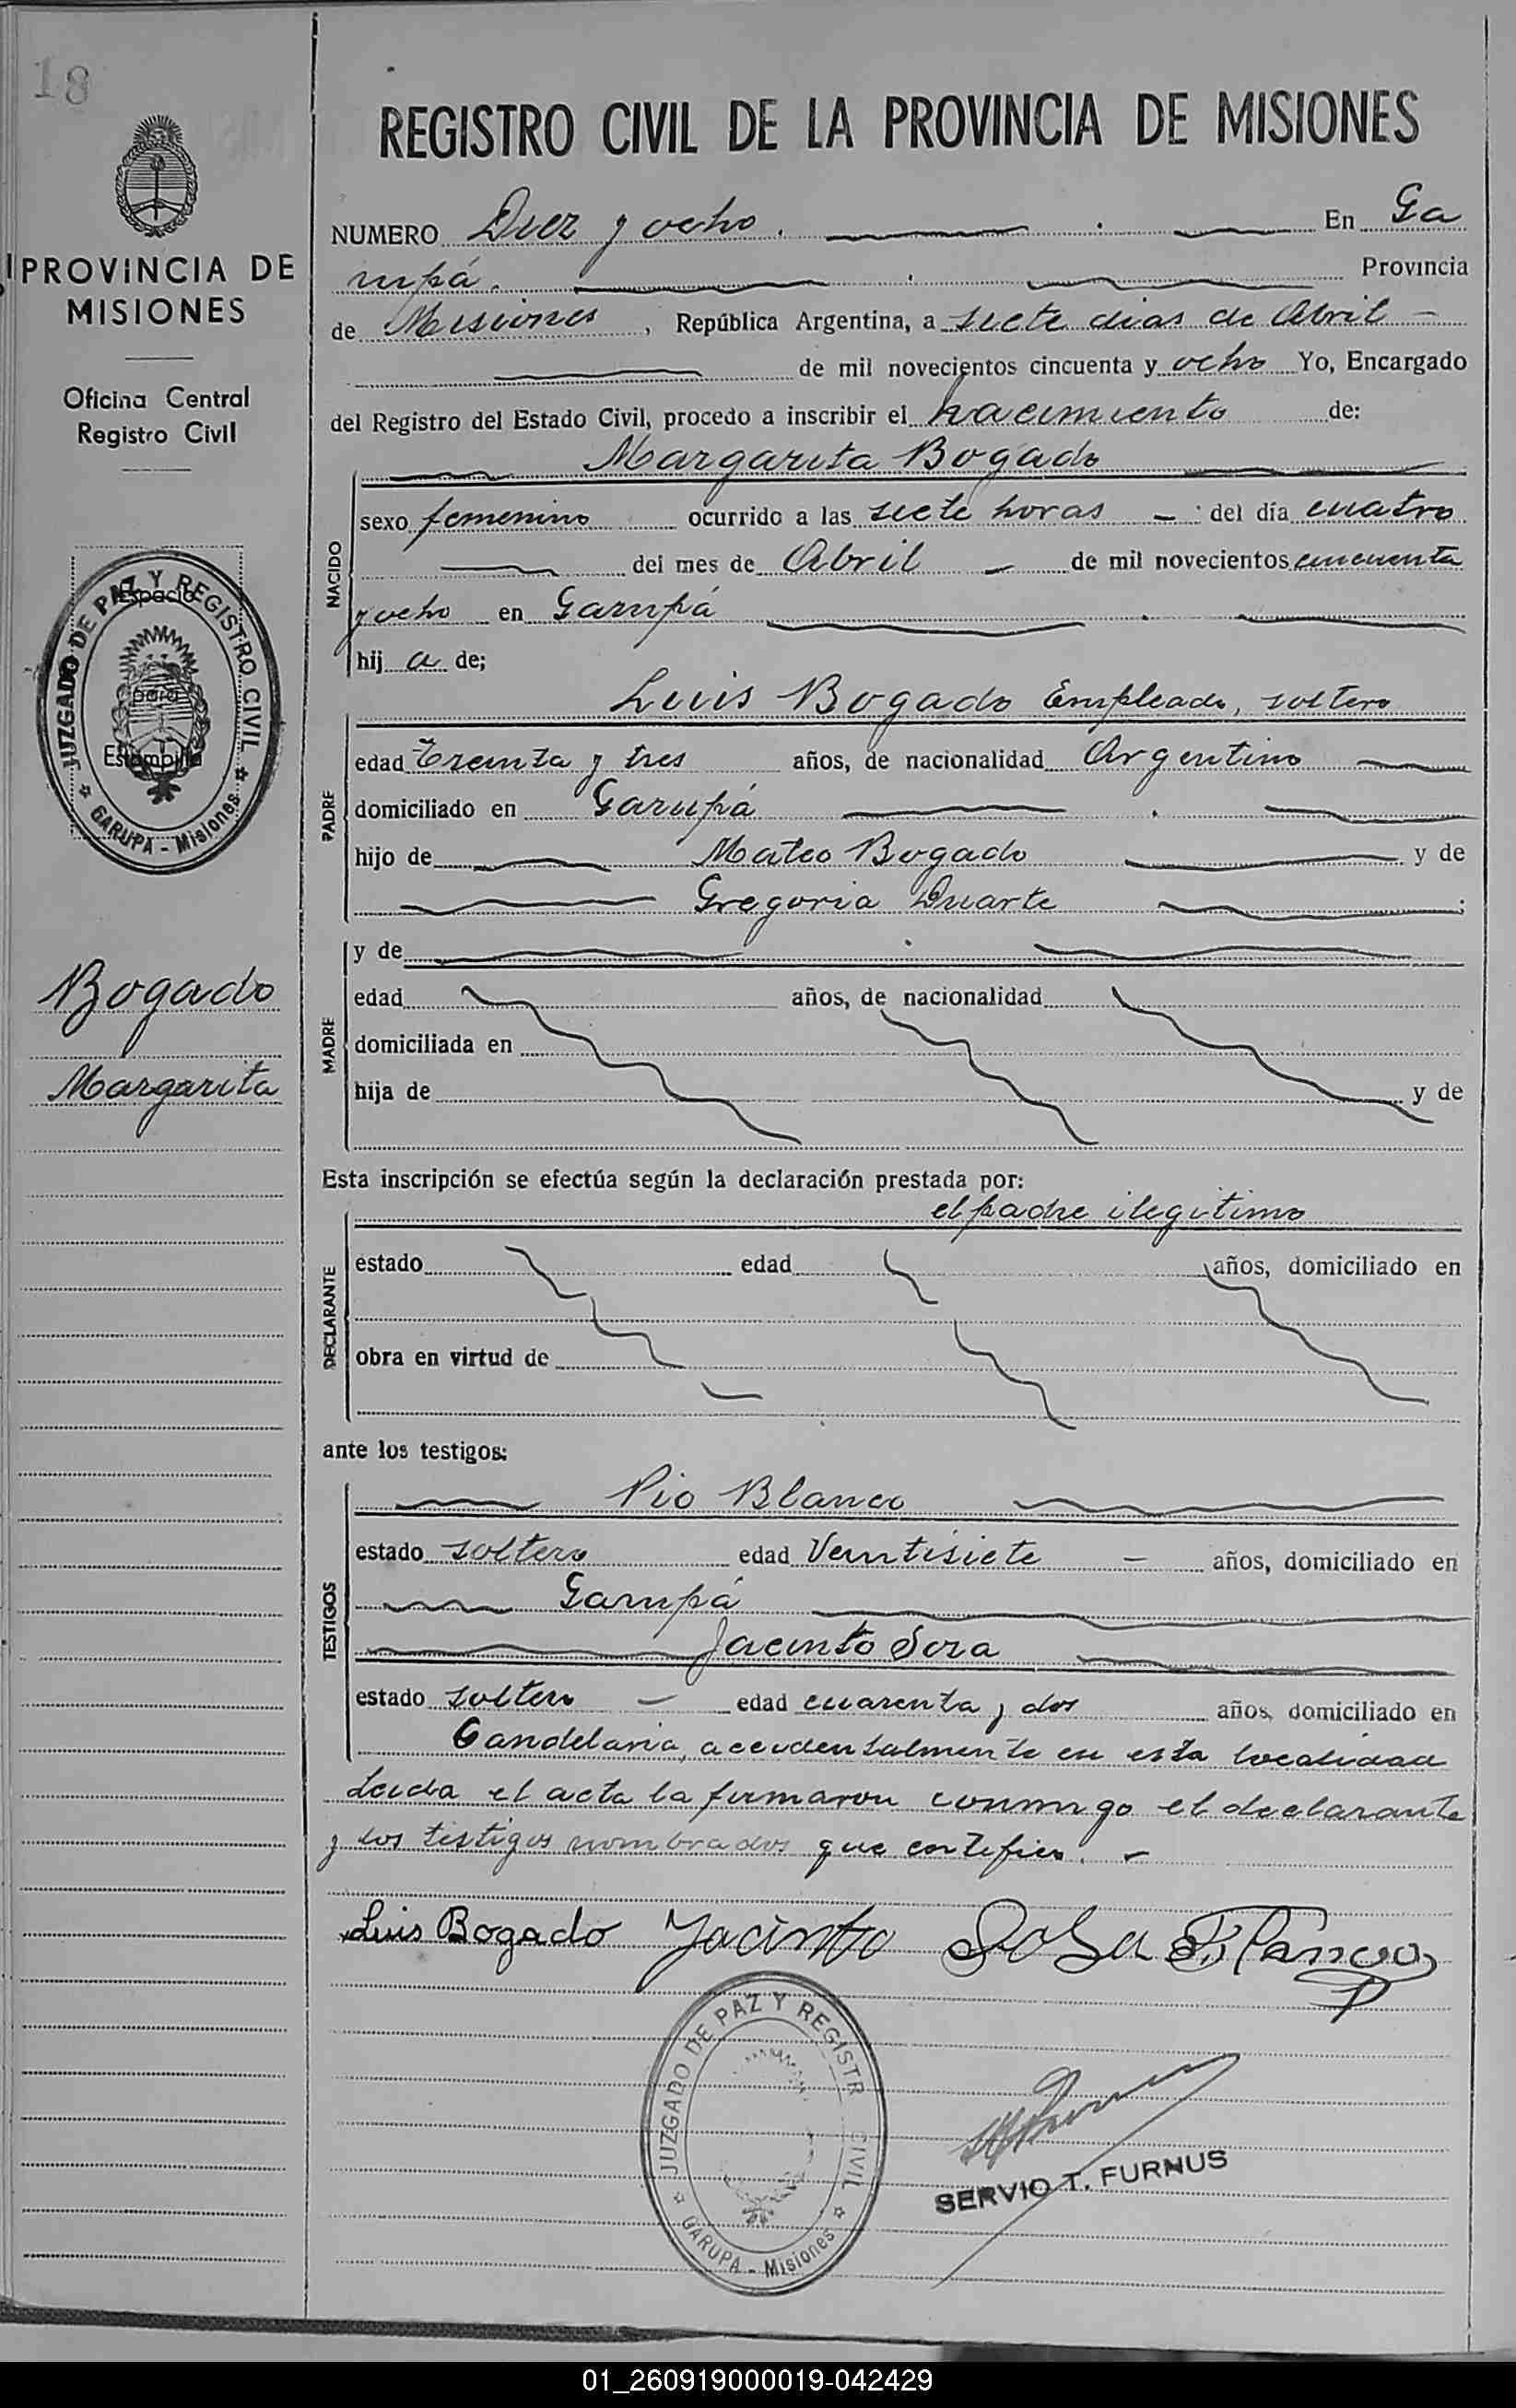 18
PROVINCIA DE
MISIONES
Oficina Central
Registro Civil
JUZGADO DE PAZ Y REGISTRO CIVIL
GARUPA - Misiones
Espacio
para
Estampilla
Bogado
Margarita
REGISTRO CIVIL DE LA PROVINCIA DE MISIONES
NUMERO Diez y ocho. En Ga
rupá. Provincia
de Misiones, República Argentina, a siete dias de Abril
de mil novecientos cincuenta y ocho Yo, Encargado
del Registro del Estado Civil, procedo a inscribir el nacimiento de:
NACIDO
Margarita Bogado
sexo femenino ocurrido a las siete horas - del día cuatro
del mes de Abril - de mil novecientos cincuenta
y ocho en Garupá
hij a de;
PADRE
Luis Bogado Empleado, soltero
edad Treinta y tres años, de nacionalidad Argentino
domiciliado en Garupá
hijo de Mateo Bogado y de
Gregoria Duarte
MADRE
y de
edad años, de nacionalidad
domiciliada en
hija de y de
Esta inscripción se efectúa según la declaración prestada por:
DECLARANTE
el padre ilegitimo
estado edad años, domiciliado en
obra en virtud de
ante los testigos:
TESTIGOS
Pio Blanco
estado soltero edad Veintisiete - años, domiciliado en
Garupá
Jacinto Sosa
estado soltero - edad cuarenta y dos años, domiciliado en
Candelaria, accidentalmente en esta localidad
Leida el acta la firmaron conmigo el declarante
y los testigos nombrados que certifico. -
Luis Bogado Jacinto Sosa P. Blanco
JUZGADO DE PAZ Y REGISTR CIVIL
GARUPA - Misiones
SERVIO T. FURNUS
01_260919000019-042429